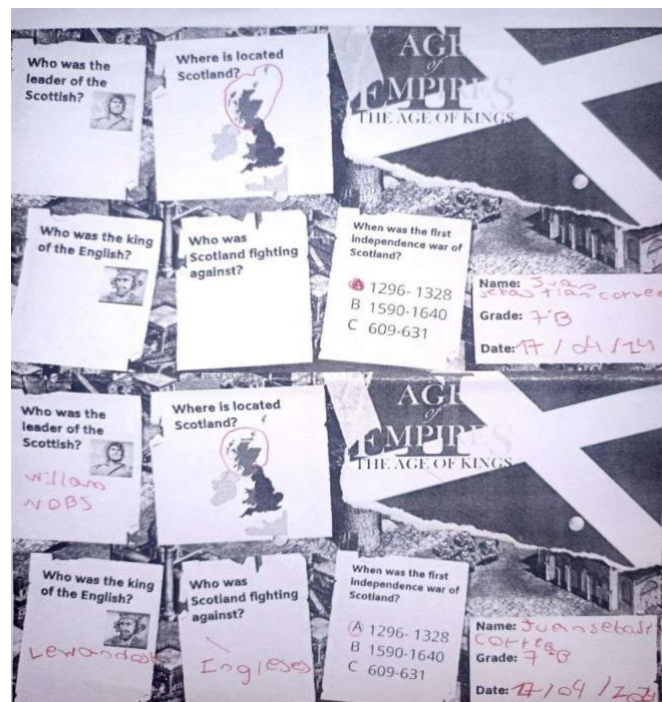 Who was the
leader of the
Scottish?
Where is located
Scotland?
AGE
of
EMPIRES
THE AGE OF KINGS
Who was the king
of the English?
Who was
Scotland fighting
against?
When was the first
independence war of
Scotland?
A 1296- 1328
B 1590-1640
C 609-631
Name: Juan
sebastian
Grade: 7°B
Date: 17 / 04 /
Who was the
leader of the
Scottish?
willans
Where is located
Scotland?
AGE
of
EMPIRES
THE AGE OF KINGS
Who was the king
of the English?
Who was
Scotland fighting
against?
Ingleses
When was the first
independence war of
Scotland?
A 1296- 1328
B 1590-1640
C 609-631
Name: Juan sebast
Grade: 7°B
Date: 17 / 04 /